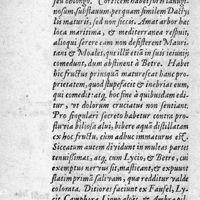 seu oblongo. Corticem habet for is lanugi-
nosum, substantiam pergnam similem Dactý
lis maturis, sed non siccis. Amat arbor hæc
loca maritima, & mediterranea respuit,
alioqui serere eam non desissent Maurei
tani & Moalis, qui illū etiā in suis terris
comedut, dum absinet à Betre. Habet
hic fructus prinsquā maturescat hanc pro-
prietatem, quod stupefaciat & inebriat eum,
qui comedit: atq; hoc fine à quibusdā edi-
tur, vt dolorem cruciatus non sentiant.
Pro singulari secreto habetur contra pro-
fluvia biliosa alui, bibere aquā distillatam
ex hoc fructu, cùm adhuc immaturus est.
Siccatum autem dividunt in multas partes
tenuissimas, atq; cum Lycio, & Betre, cui
exemptus nervus sit, masticant, & expuunt
statim primā salivam, qua redditur valde
colorata. Ditiores faciunt ex Faufel, Ly-
cio, Camphora, Ligno aloës, & Ambra pil-